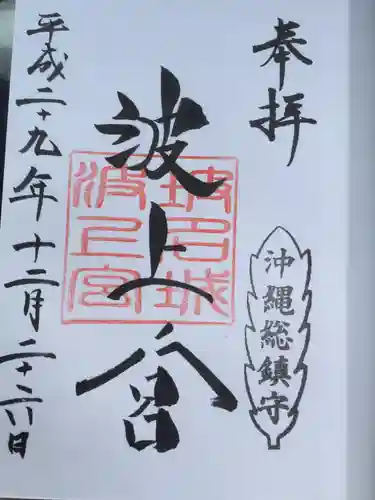 奉拝
沖縄総鎮守
波上宮
波名城
波上宮
平成二十九年十二月二十六日